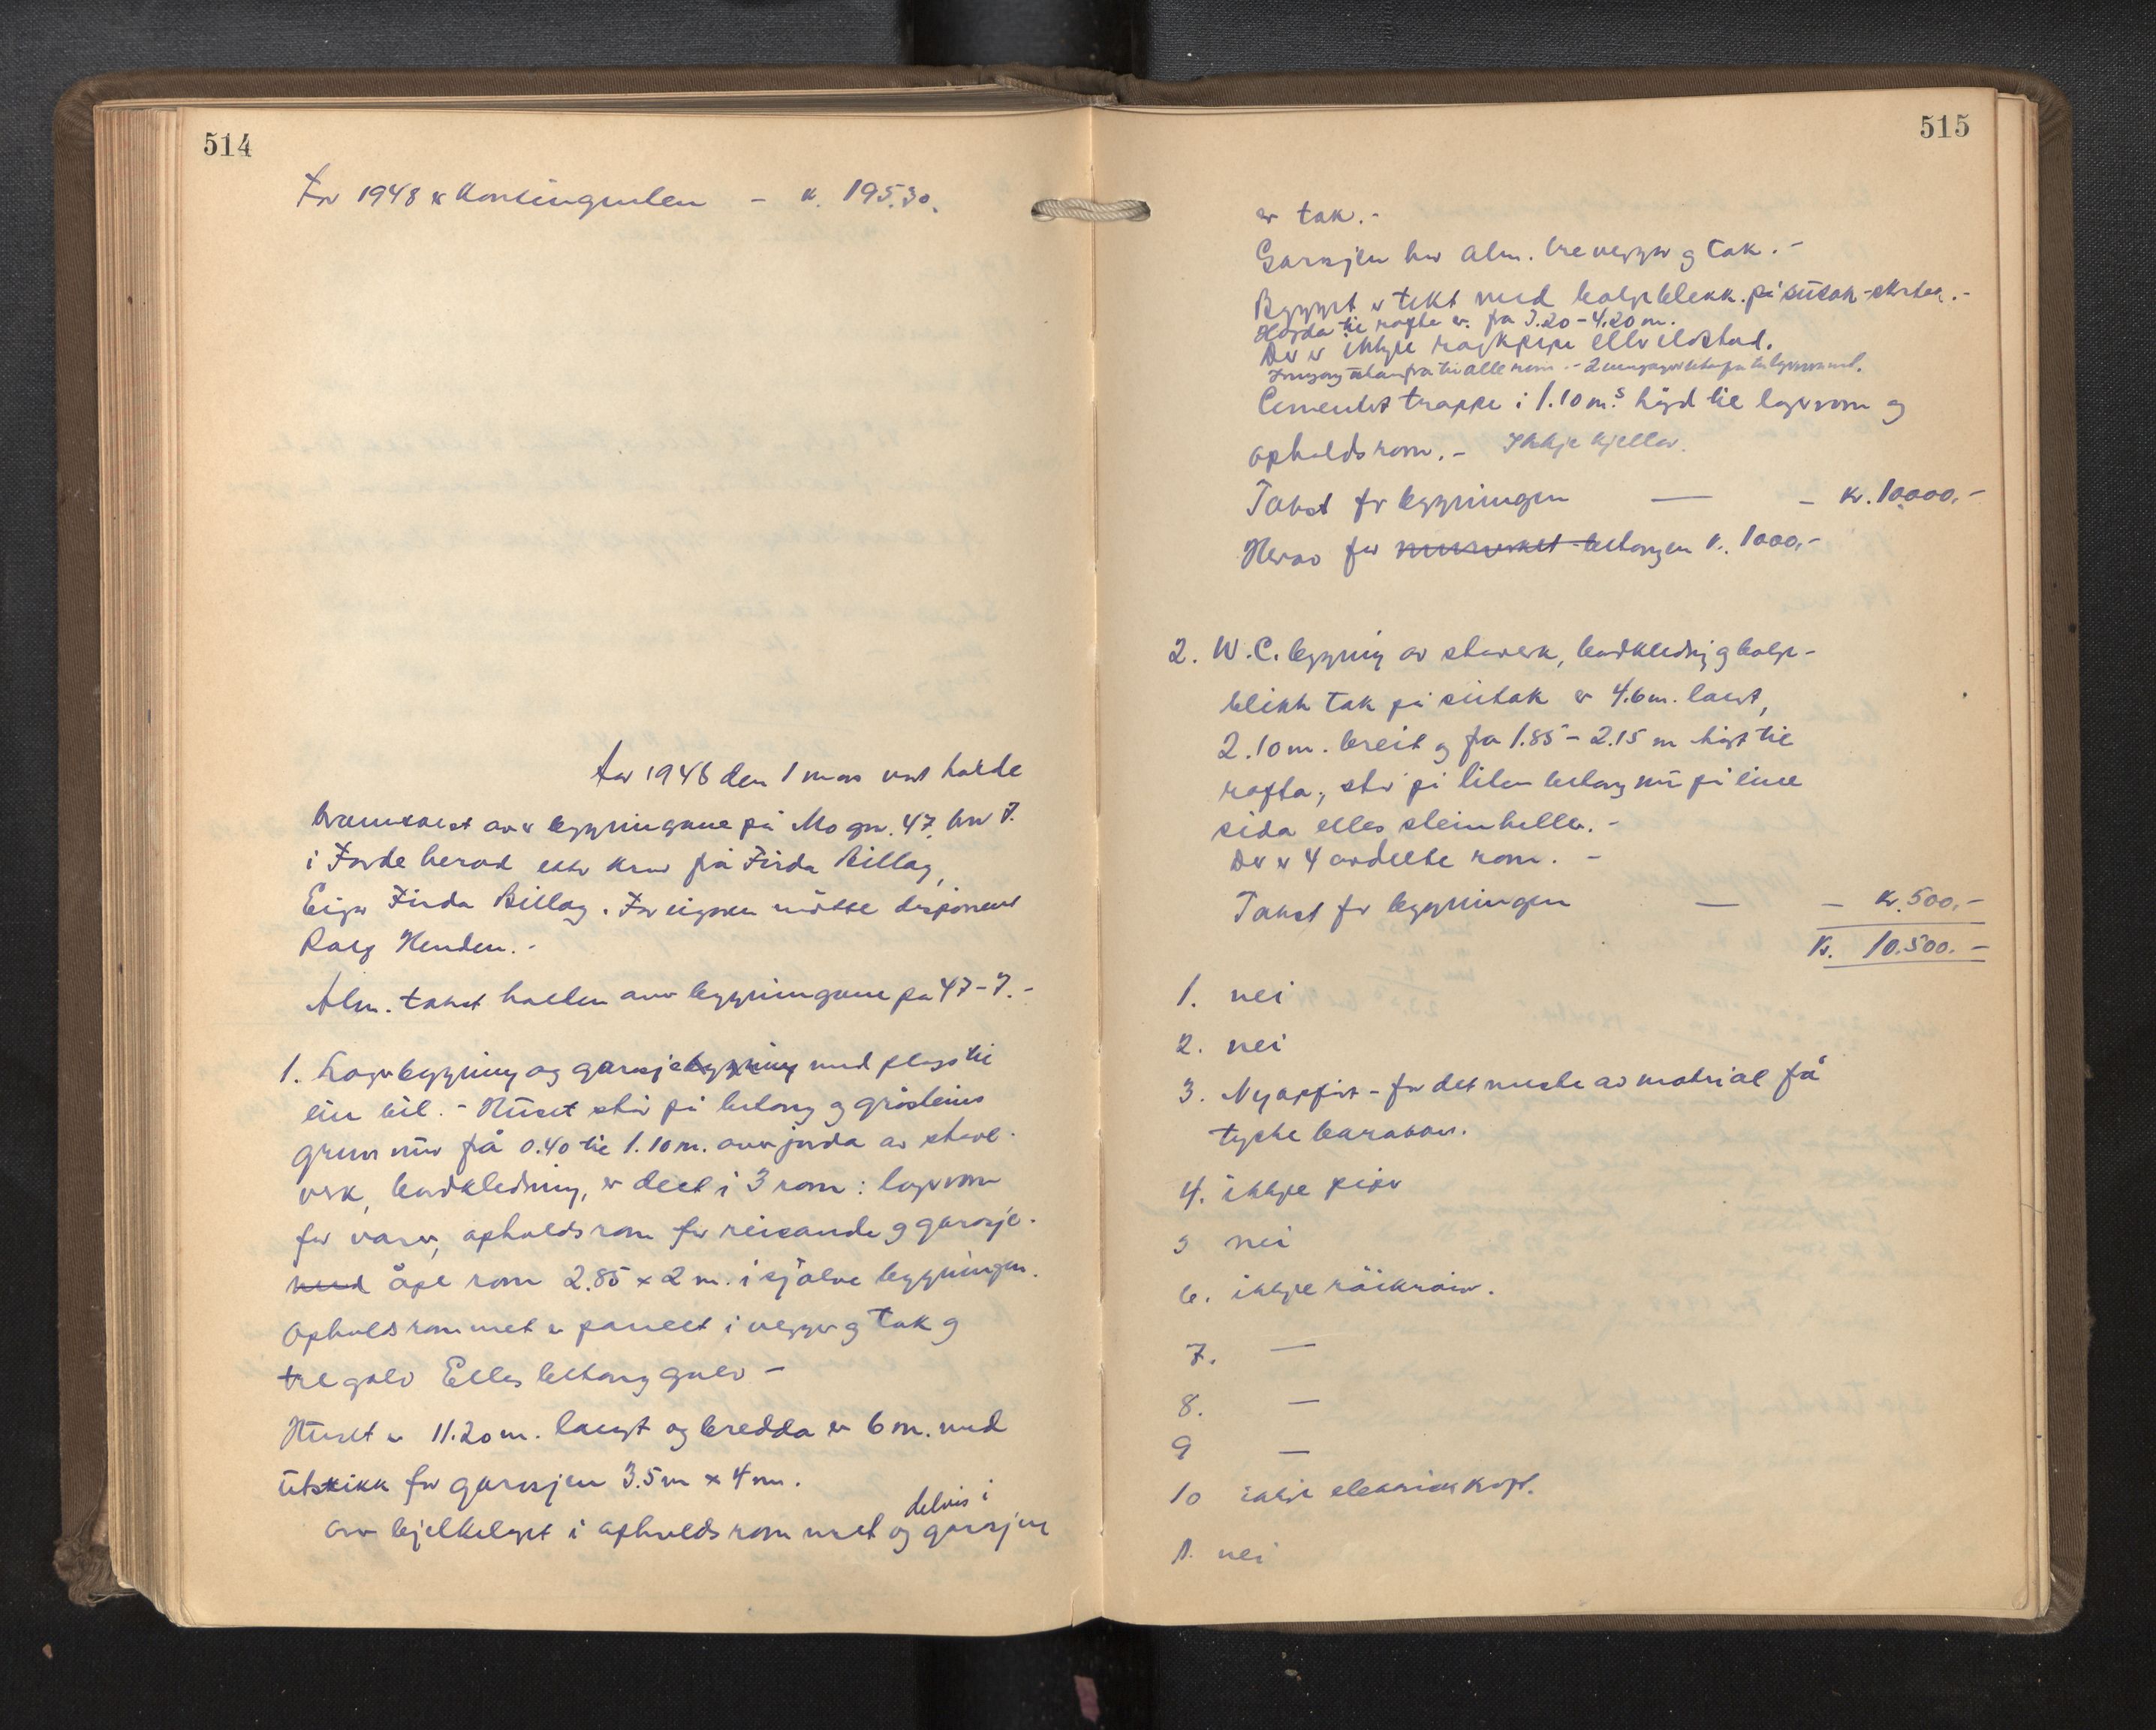 514
For 1948 er kontingenten - kr. 195.30.
År 1948 den 1 mars vart halde
branntakst over bygningane på Mo gnr. 47, bnr 7.
i Førde herad etter krav frå Firda Billag,
Eigar Firda Billag. For eigaren møtte disponent
Henden. -
Alm. takst halden over bygningane på 47-7. -
1. Lagerbygning og garasjebygning med plass til
ein bil. - Huset står på betong og gråsteins
grunnmur frå 0.40 til 1.10 m. over jorda av stav-
verk, bordkledning, er delt i 3 rom: lagerrom
for varer, opholdsrom for reisande og garasje.
med åpe rom 2.85 x 2 m. i sjølve bygningen.
Opholdsrommet er panelt i vegger og tak og
tregolv Elles betong golv -
Huset er 11.20 m. langt og bredda er 6 m. med
utstikk for garasjen 3.5 m x 4 m.
delvis i
Over bjelkelaget i opholdsrommet og garasjen
515
er tak. -
Garasjen har alm. trevegger og tak. -
Bygget er tekt med bølgeblekk. på sutak
Høgda til rafta er. frå 3.20 - 4.20 m.
Der er ikkje røykpipe eller eldstad.
Inngang utanfra til alle rom. - 2
Cementert trappe i 1.10 m.s høgd til lagerrom og
opholdsrom. - Ikkje kjellar.
Takst for bygningen — - kr. 10.000.-
Herav for murverket betongen kr. 1000,-
2. W.C. bygning av staverk, bordkledning og bølge-
blikk tak på sutak er 4.6 m. langt,
2.10 m. breit og fra 1.85 - 2.15 m høgt til
rafta, står på liten betong mur på eine
sida elles steinheller. -
Der er 4 avdelte rom. -
Takst for bygningen — - kr. 500,-
Kr. 10.500.-
1. nei
2. nei
3. Nyoppført - for det meste av matrial få
tyske barakker.
4. ikkje piper
5 nei
6. ikkje røikrøir.
7. —
8. —
9 —
10 ikkje elektrisk kraft.
11. nei